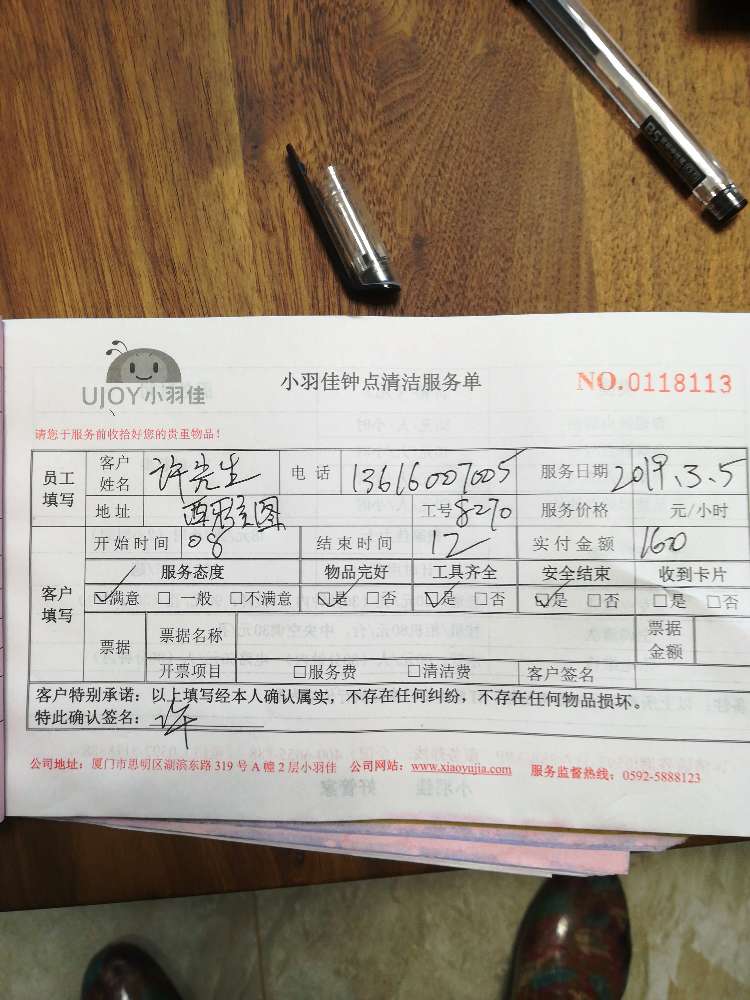 UJOY小羽佳
小羽佳钟点清洁服务单
NO.0118113
请您于服务前收拾好您的贵重物品！
员工填写 客户姓名 许先生 电话 13616007005 服务日期 2019.3.5
地址 工号 8270 服务价格 元/小时
开始时间 08 结束时间 12 实付金额 160
客户填写 服务态度 物品完好 工具齐全 安全结束 收到卡片
☑满意 □一般 □不满意 ☑是 □否 ☑是 □否 ☑是 □否 □是 □否
票据 票据名称 票据金额
开票项目 □服务费 □清洁费 客户签名
客户特别承诺：以上填写经本人确认属实，不存在任何纠纷，不存在任何物品损坏。
特此确认签名：许
公司地址：厦门市思明区湖滨东路 319 号 A 幢 2 层小羽佳 公司网站：www.xiaoyujia.com 服务监督热线：0592-5888123